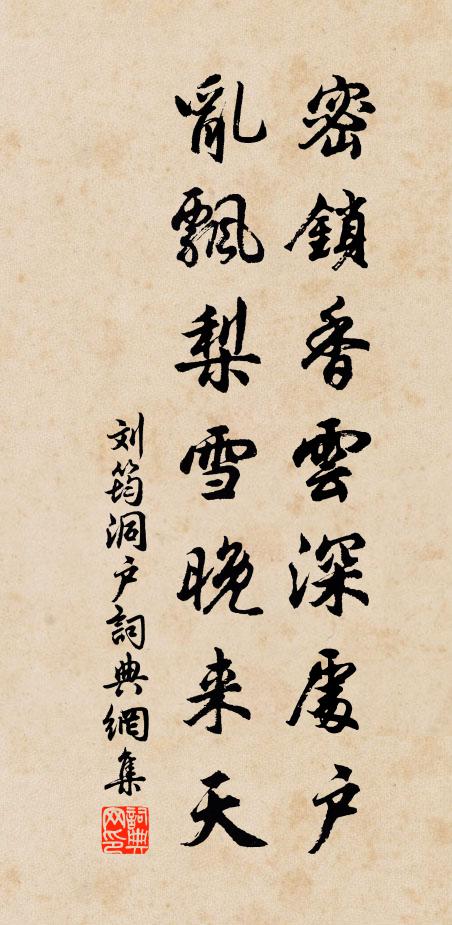 密鎖香雲深處户
亂飄梨雪晚来天
刘筠洞户詞典網集
詞典网印